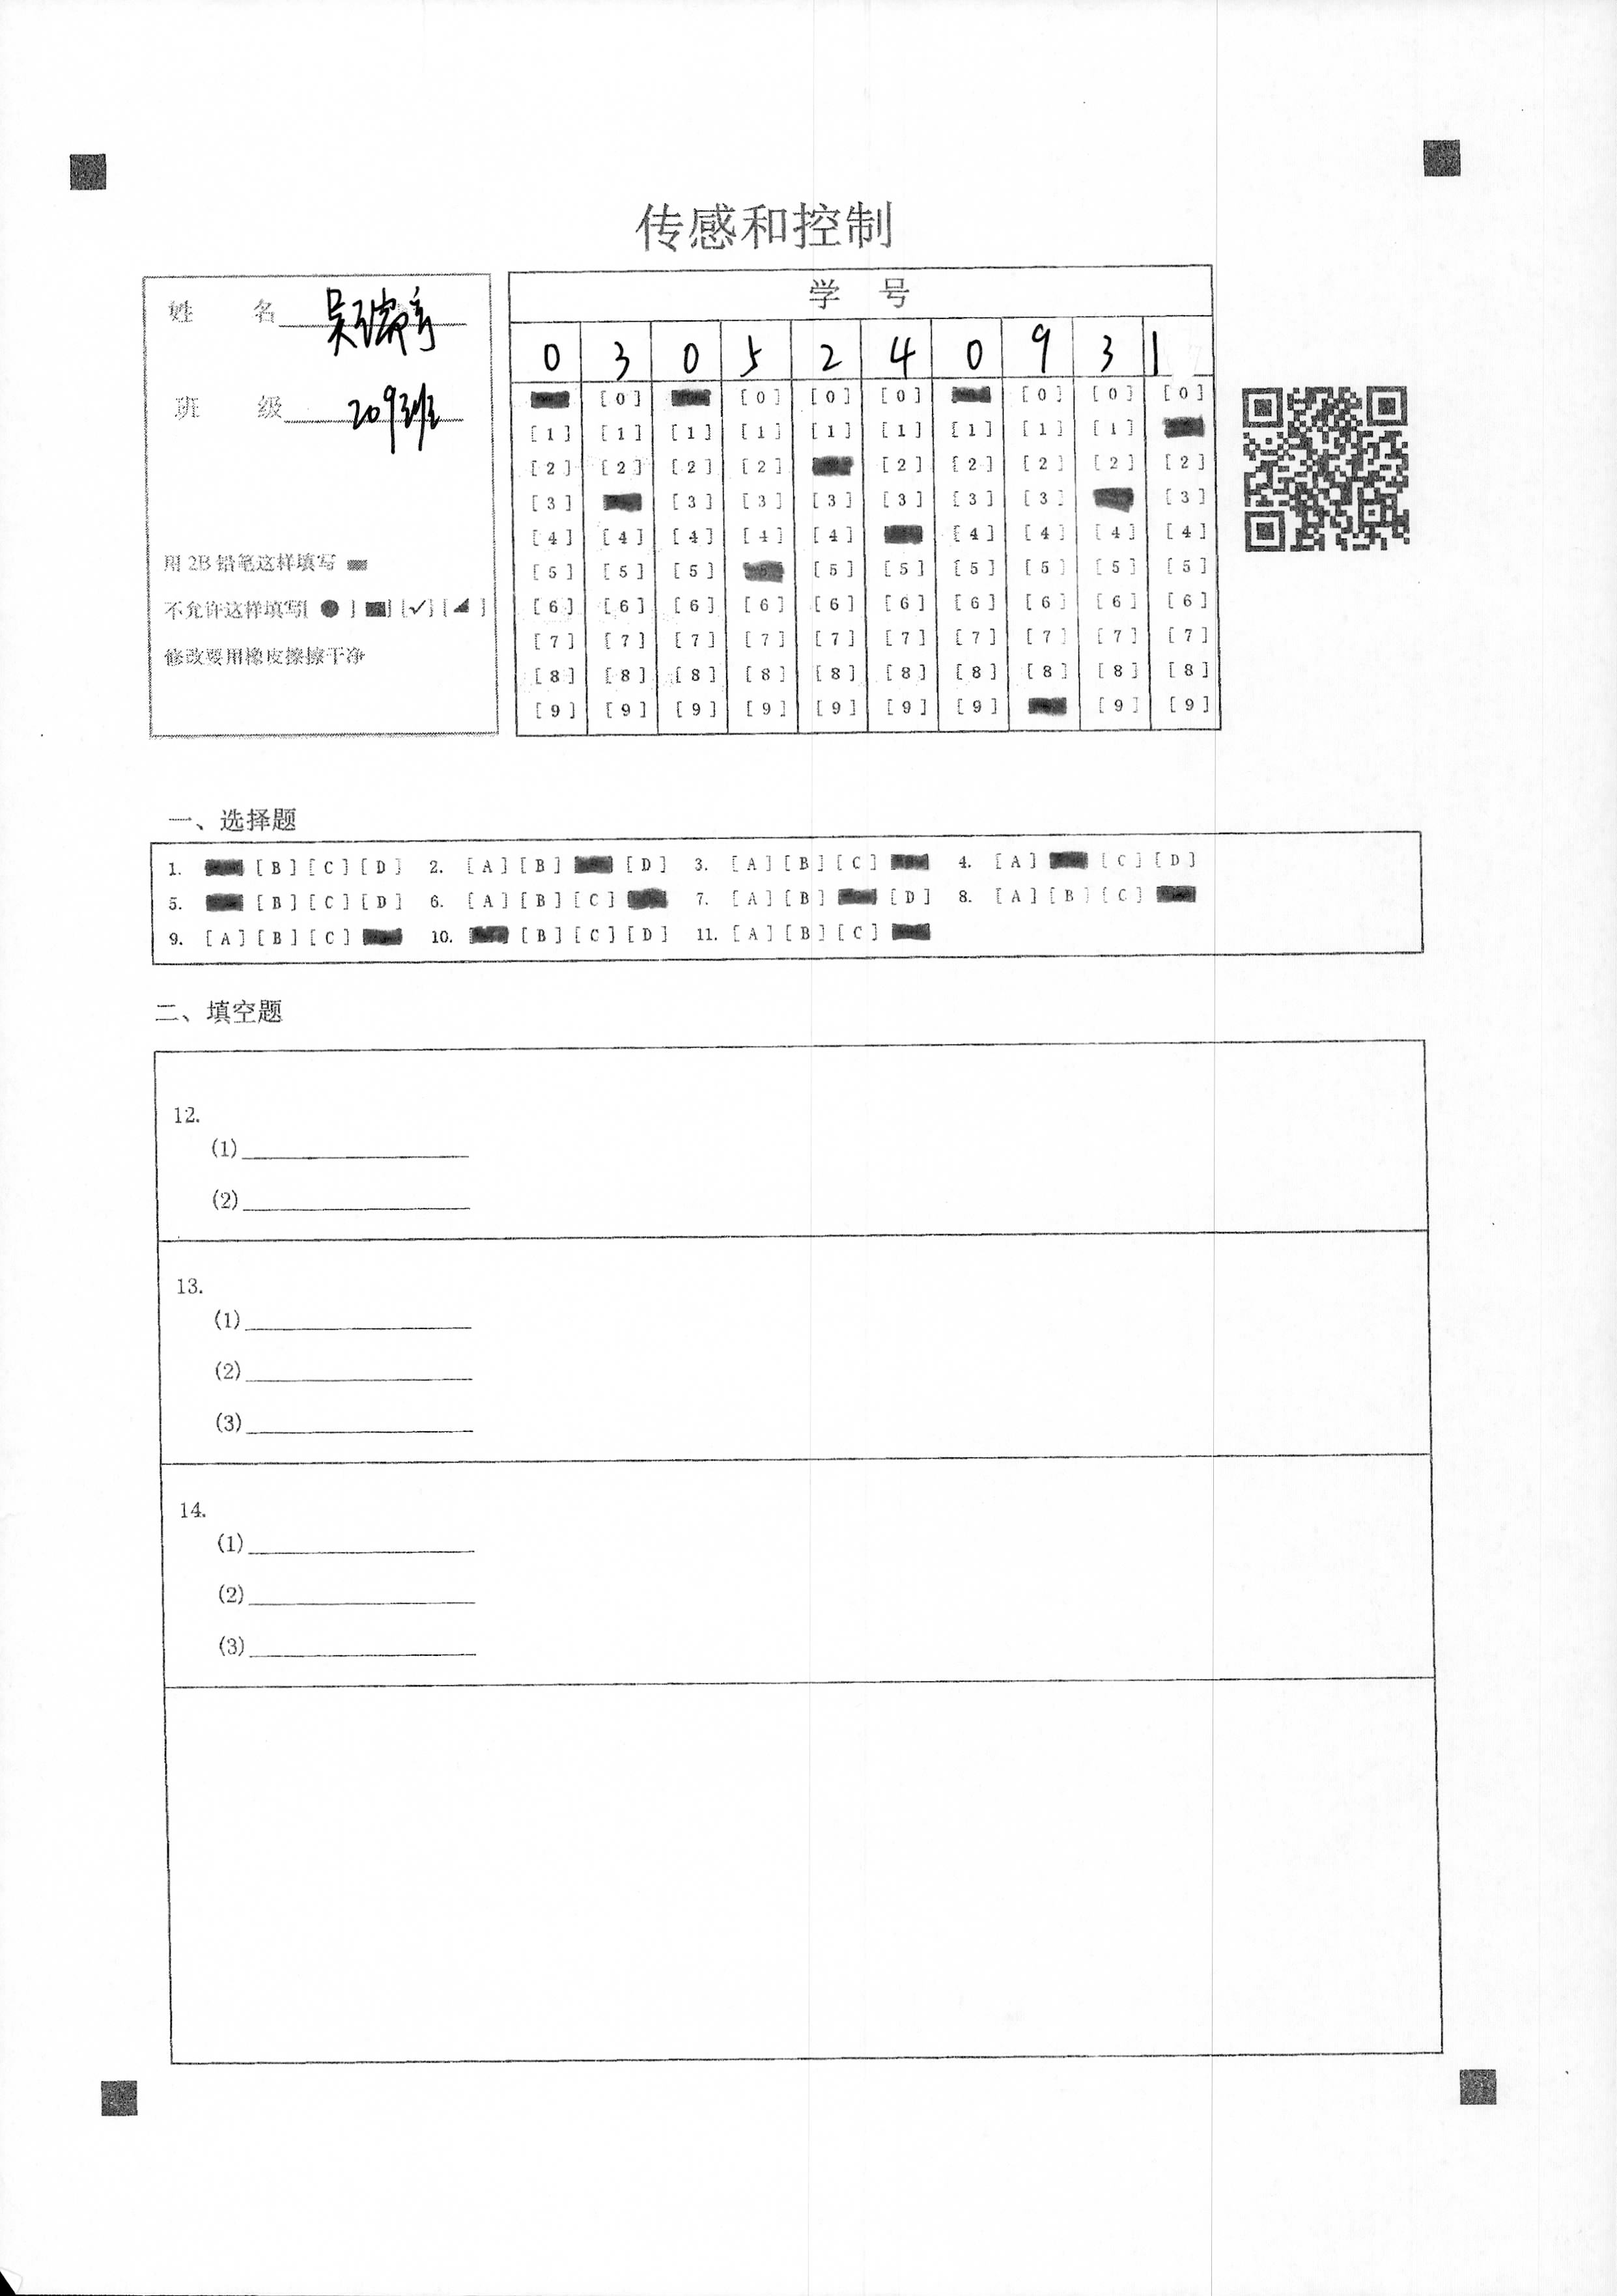 传感和控制
姓 名 吴
班 级 209班
用 2B 铅笔这样填写
不允许这样填写[ ] [ ] [✓] [ ]
修改要用橡皮擦擦干净
学 号
0 3 0 5 2 4 0 9 3 1
[0] [0] [0] [0] [0] [0] [0]
[1] [1] [1] [1] [1] [1] [1] [1] [1]
[2] [2] [2] [2] [2] [2] [2] [2] [2]
[3] [3] [3] [3] [3] [3] [3] [3]
[4] [4] [4] [4] [4] [4] [4] [4] [4]
[5] [5] [5] [5] [5] [5] [5] [5] [5]
[6] [6] [6] [6] [6] [6] [6] [6] [6] [6]
[7] [7] [7] [7] [7] [7] [7] [7] [7] [7]
[8] [8] [8] [8] [8] [8] [8] [8] [8] [8]
[9] [9] [9] [9] [9] [9] [9] [9] [9]
一、选择题
1. [B] [C] [D] 2. [A] [B] [D] 3. [A] [B] [C] 4. [A] [C] [D]
5. [B] [C] [D] 6. [A] [B] [C] 7. [A] [B] [D] 8. [A] [B] [C]
9. [A] [B] [C] 10. [B] [C] [D] 11. [A] [B] [C]
二、填空题
12.
(1)
(2)
13.
(1)
(2)
(3)
14.
(1)
(2)
(3)